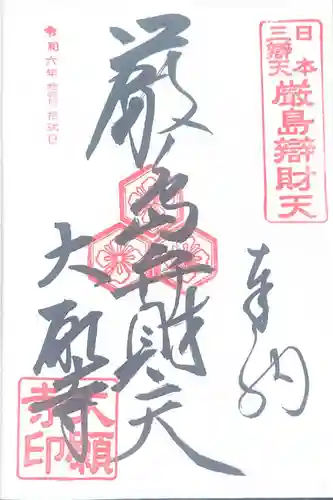 日本
三辯天
厳島辯財天
奉納
厳島弁財天
大願寺
大願
寺印
令和六年